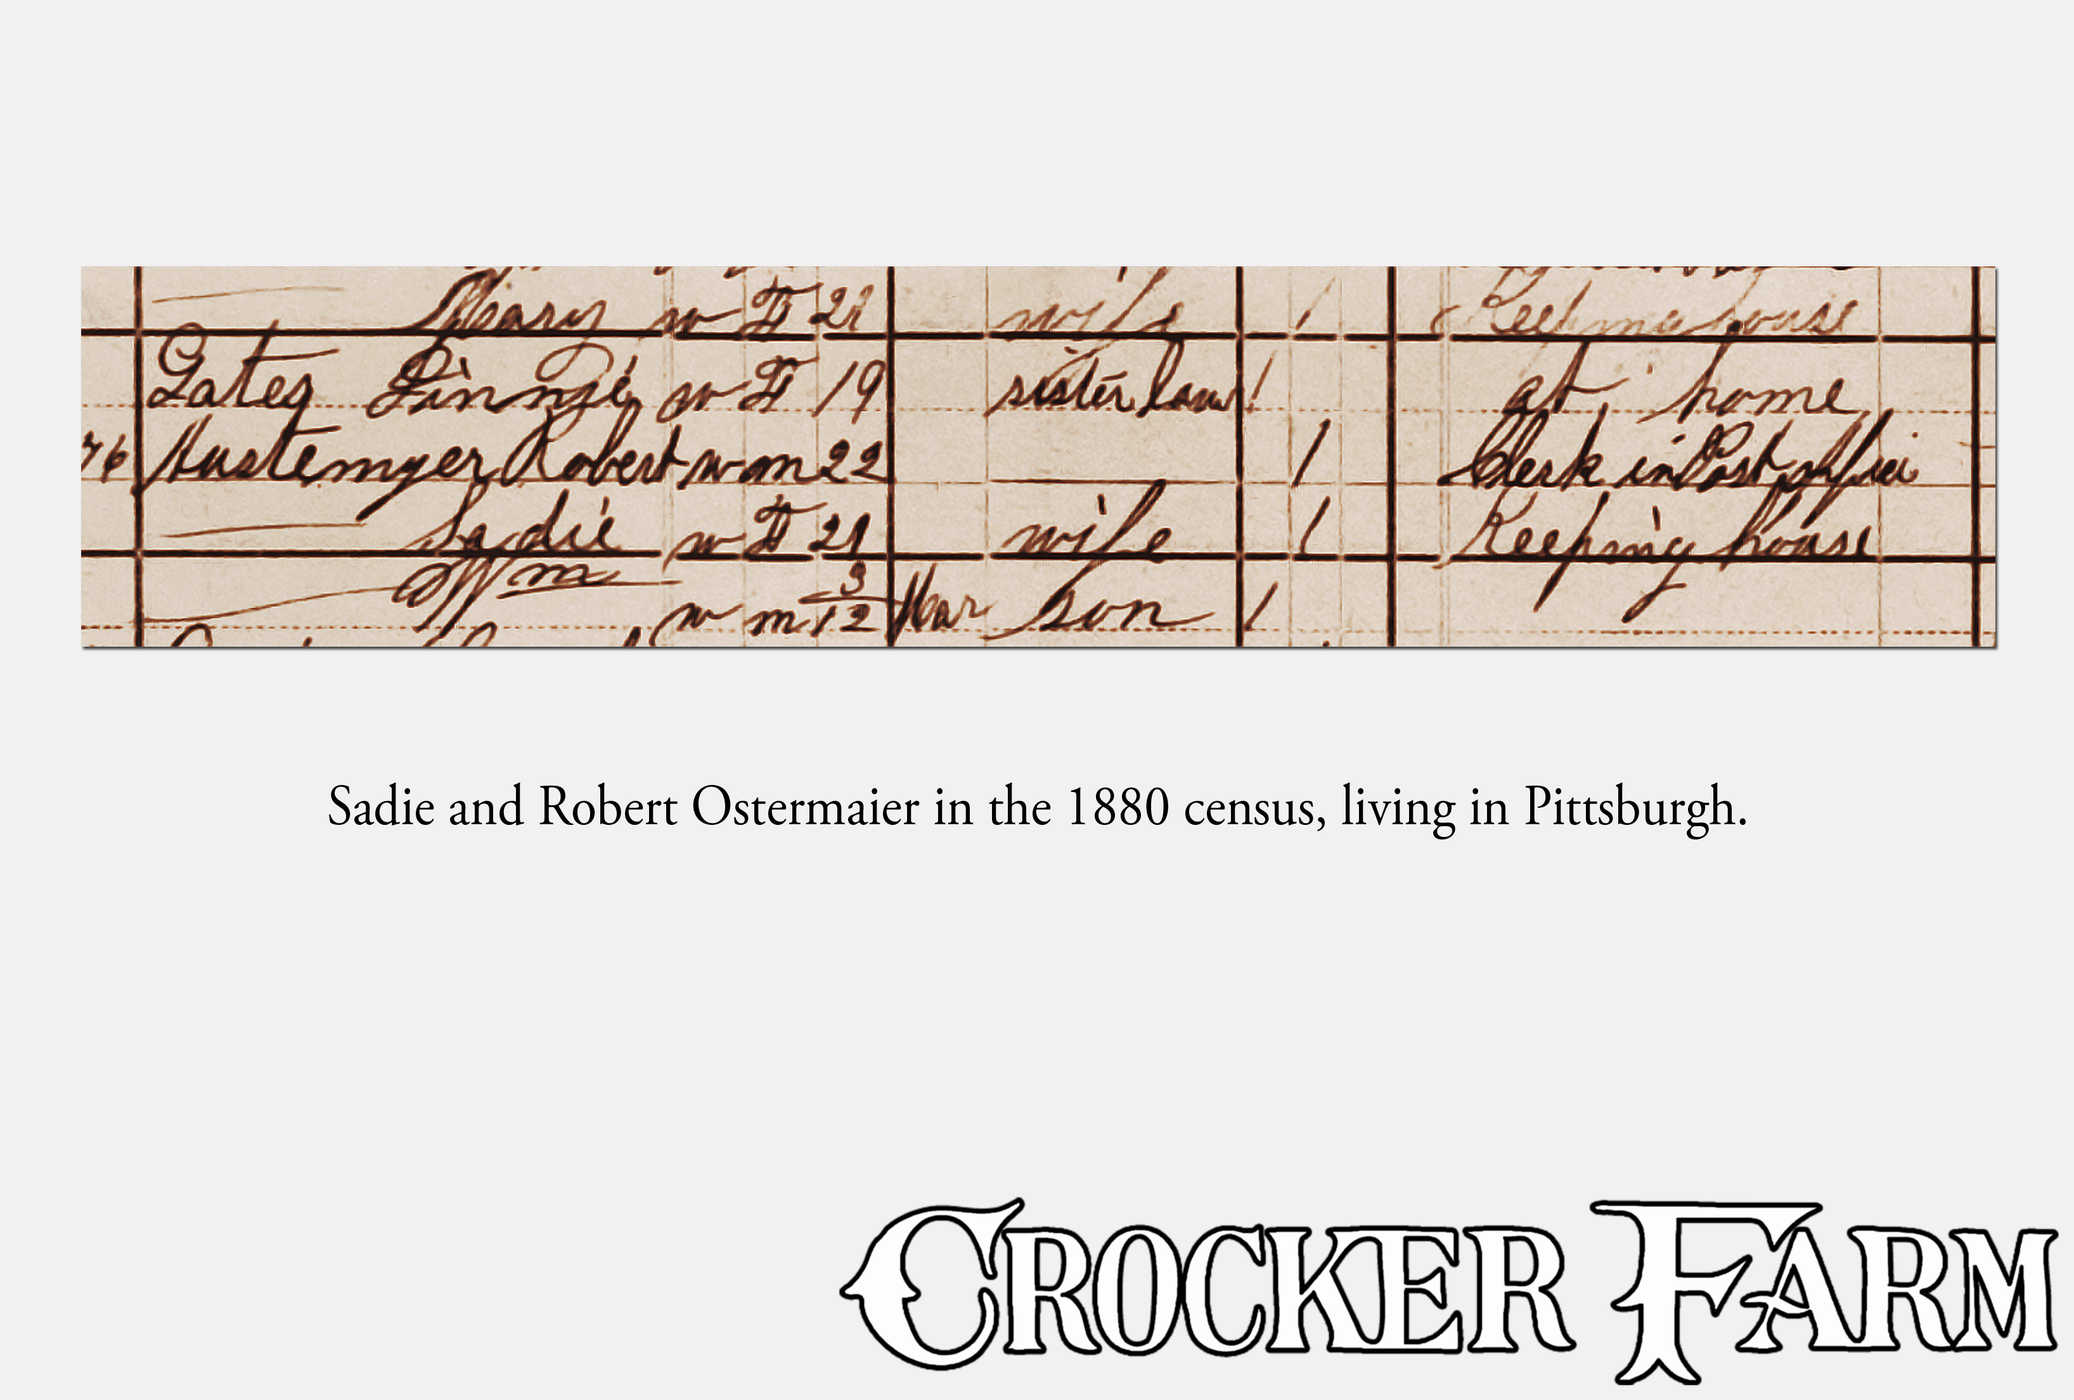 Mary w F 21 wife / Keeping house
Gates Linnie w F 19 sister law / at home
76 Austemyer Robert w m 22 / Clerk in Post office
Sadie w F 21 wife / Keeping house
Wm w m 3/12 Mar Son /
Sadie and Robert Ostermaier in the 1880 census, living in Pittsburgh.
CROCKER FARM